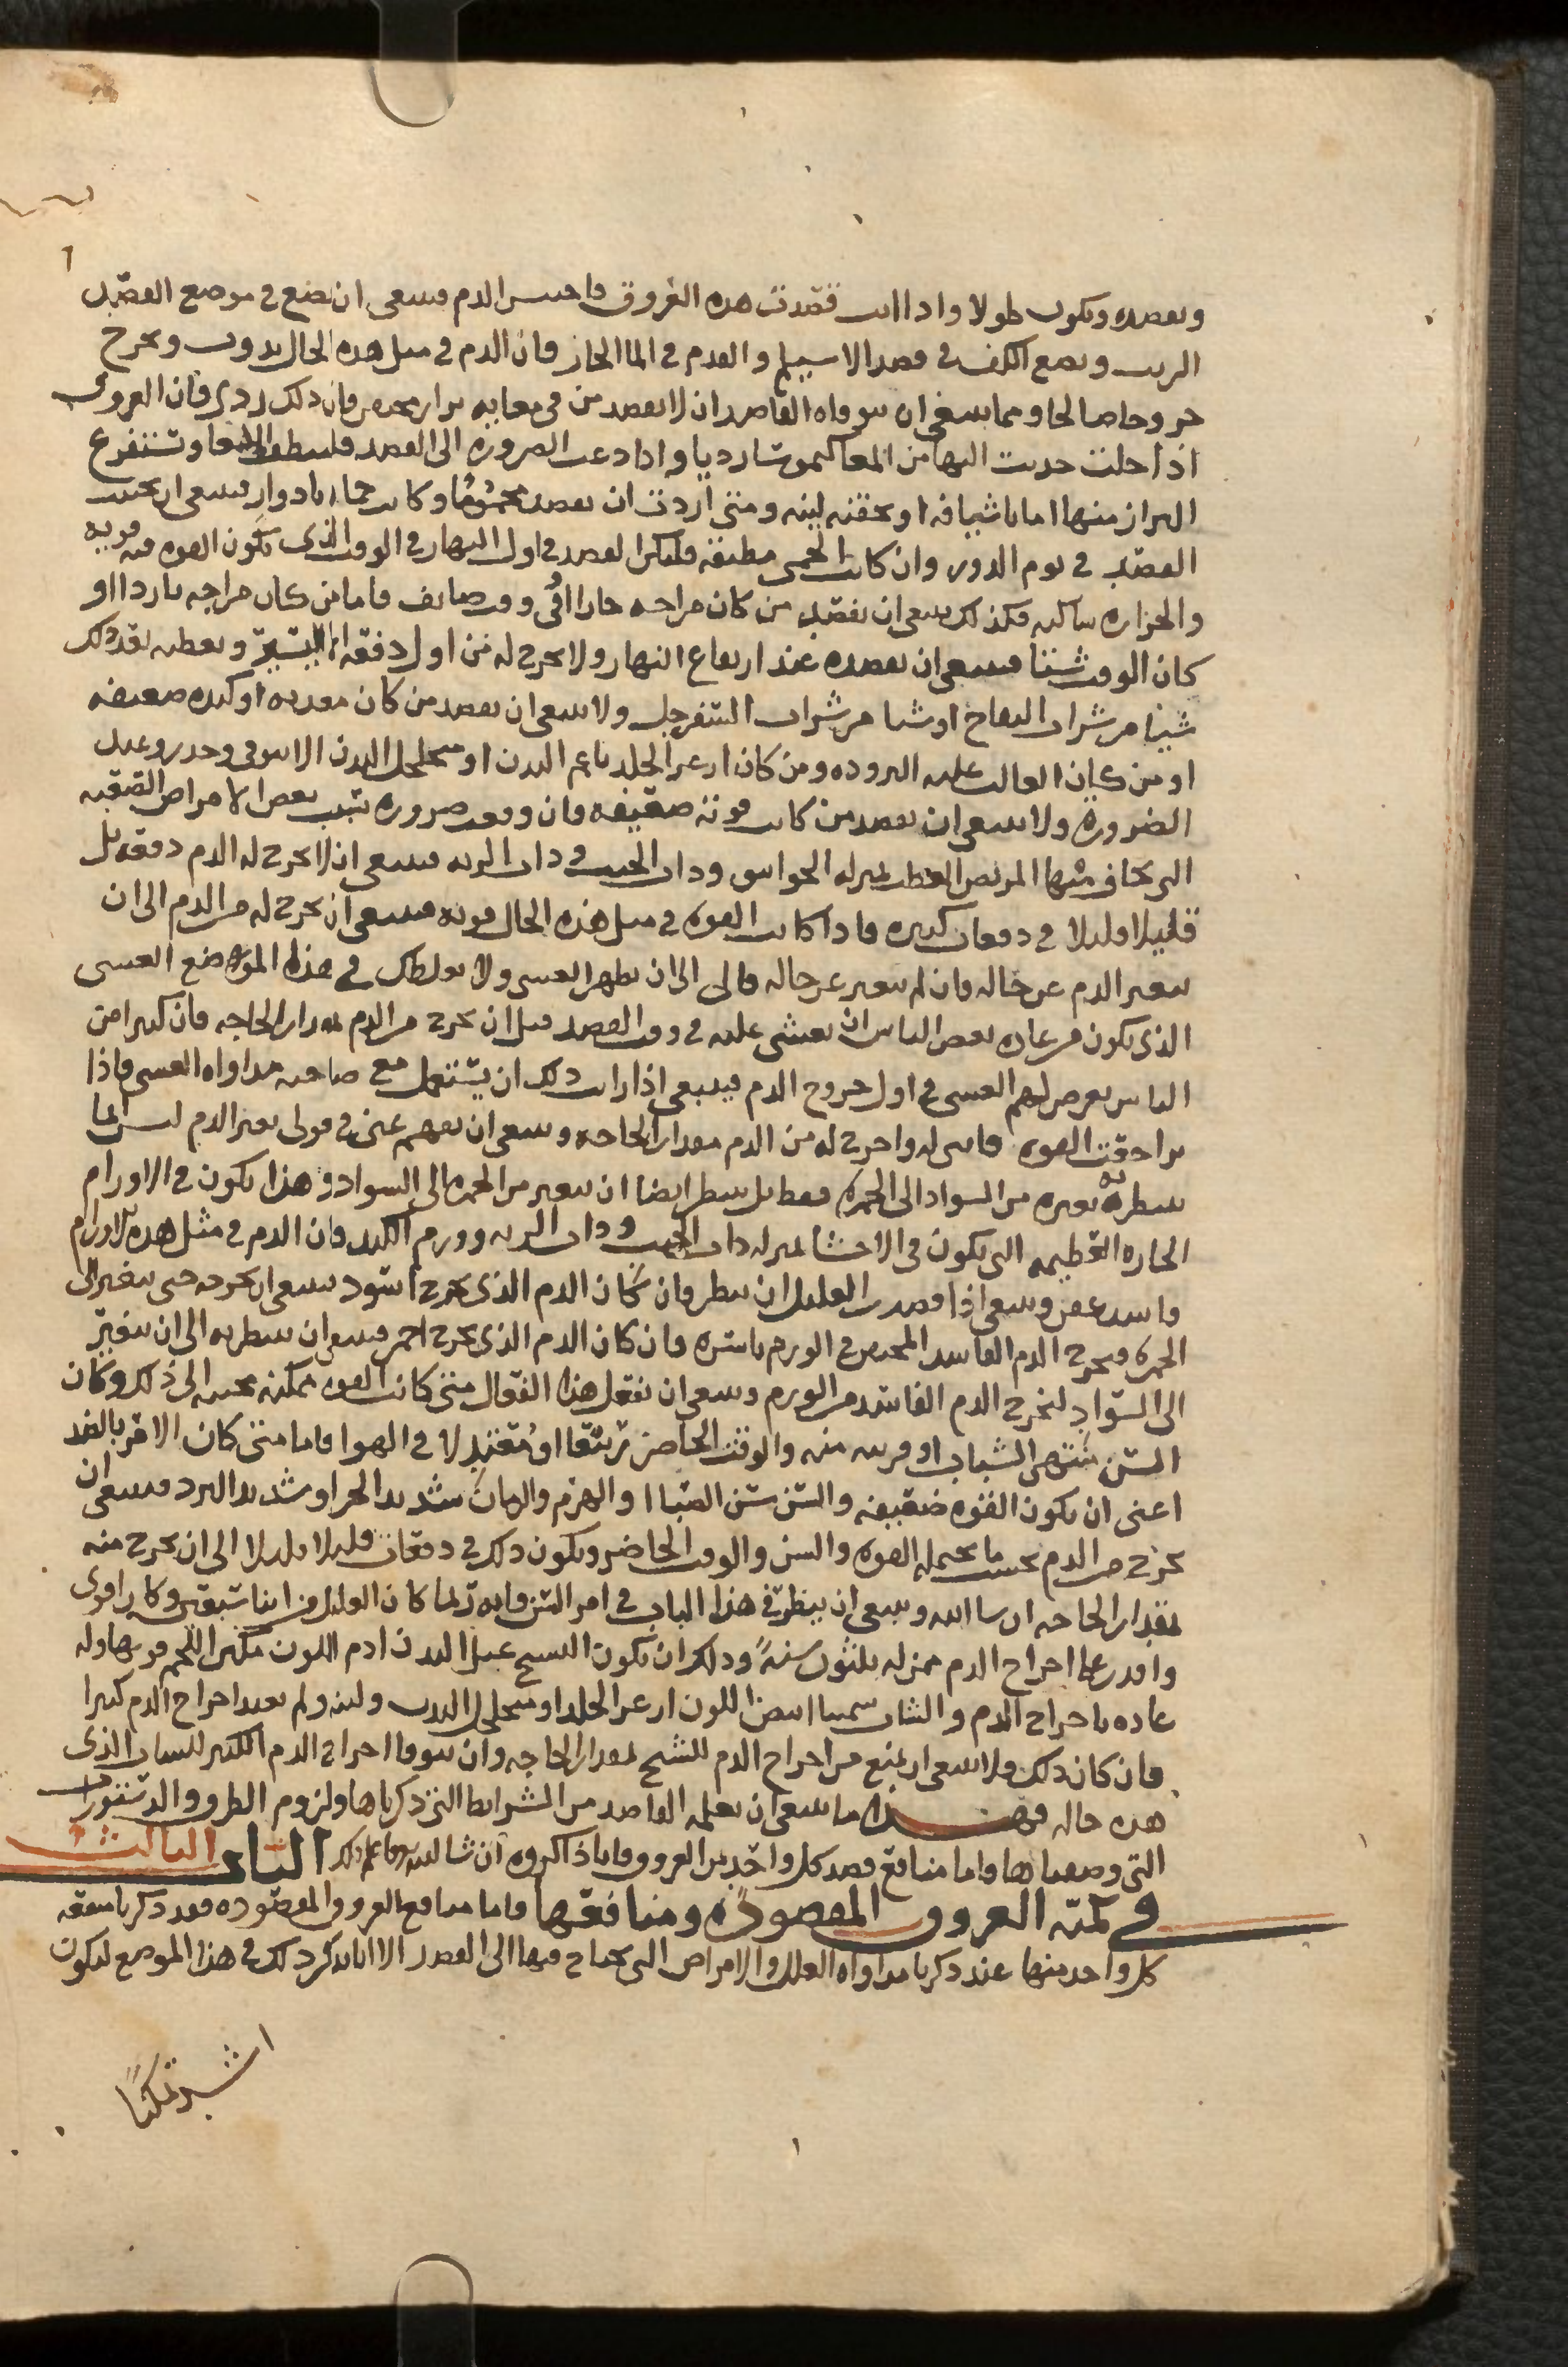 وتفصده ويكون طولا واذا انت فصدت هذه العروق فاحتبس الدم فينبغي ان تضع في موضع الفصد
الزيت وتضع الكف في فصد الاسيلم والقدم في الما الحار فان الدم في مثل هذه الحال يذوب ويخرج
خروجا صالحا ومما ينبغي ان يتوقاه الفاصد ان لا يفصد من في معايه براز محتبس فان ذلك ردي فان العروق
اذا خلت جذبت اليها من المعا كيموسا رديا واذا دعت الضروره الى الفصد فلينظف الامعا وتستفرغ
البراز منها اما باشيافه او بحقنه لينه ومتى اردت ان تفصد محموما وكانت حماه بادوار فينبغي ان يجتنب
الفصد في يوم الدور وان كانت الحمى مطبقه فليكن الفصد في اول النهار في الوقت الذي تكون القوه فيه قويه
والحراره ساكنه فكذلك ينبغي ان يفصد من كان مزاجه حارا او في وقت صايف فاما من كان مزاجه باردا او
كان الوقت شتا فينبغي ان تفصده عند ارتفاع النهار ولا يخرج له من اول دفعه الا اليسير وتعطيه بعد ذلك
شيئا من شراب التفاح او شيا من شراب السفرجل ولا ينبغي ان يفصد من كان معدته او كبده ضعيفه
او من كان الغالب عليه البروده ومن كان ازعر الجلد ناعم البدن او متخلخل البدن الا بتوقي وحذر وعند
الضروره ولا ينبغي ان يفصد من كانت قوته ضعيفه فان وقعت ضروره بسبب بعض الامراض الصعبه
التي يخاف منها المريض العطب بمنزله الخوانيق وذات الجنب وذات الريه فينبغي ان لا يخرج له الدم دفعه بل
قليلا قليلا في دفعات كثيره فاذا كانت القوه في مثل هذه الحال قويه فينبغي ان يخرج له من الدم الى ان
يتغير الدم عن حاله فان لم يتغير عن حاله فالى الى ان يظهر الغشي ولا يغلطك في هذا الموضع الغشي
الذي يكون من عاده بعض الناس ان يغشى عليه في وقت الفصد قبل ان يخرج من الدم مقدار الحاجه فان كثيرا من
الناس يعرض لهم الغشي في اول خروج الدم فينبغي اذا رايت ذلك ان يستعمل مع صاحبه مداواه الغشي فاذا
تراجعت القوه فاسله واخرج له من الدم مقدار الحاجه وينبغي ان تفهم عني في قولي تغير الدم ليس انما
ينظر به تغيره من السواد الى الحمره فقط بل ينظر ايضا ان يتغير من الحمره الى السواد وهذا يكون في الاورام
الحاره العظيمه التي يكون في الاحشا بمنزله ذات الجنب وذات الريه وورم الكبد فان الدم في مثل هذه الاورام
فاسد عفن وينبغي اذا فصدت العليل ان ينظر فان كان الدم الذي يخرج اسود ينبغي ان يخرجه حتى يتغير الى
الحمره ويخرج الدم الفاسد المحتبس في الورم باسره فان كان الدم الذي يخرج احمر فينبغي ان ينظر به الى ان يتغير
الى السواد ليخرج الدم الفاسد من الورم وينبغي ان تفعل هذا الفعال متى كانت القوه ممكنه مجيبه الى ذلك وكان
السن منتهى الشباب او قريب منه والوقت الحاضر ربيعا او معتدلا في الهوا فاما متى كان الامر بالضد
اعني ان يكون القوه ضعيفه والسن سن الصبا او الهرم والزمان شديد الحر او شديد البرد فينبغي ان
يخرج من الدم بحسب ما يحتمله القوه والسن والوقت الحاضر ويكون ذلك في دفعات قليلا قليلا الى ان يخرج منه
بمقدار الحاجه ان شا الله وينبغي ان ينظر في هذا الباب في امر السن فانه ربما كان العليل من ابنا سبعين وكان اقوى
واقدر على اخراج الدم ممن له ثلثون سنة وذلك ان يكون الشيخ عبل البدن ادم اللون مكتنز اللحم قويها وله
عاده باخراج الدم والشاب سمينا ابيض اللون ازعر الجلد او متخلخل البدن ولينه ولم يعتد اخراج الدم كثيرا
فان كان ذلك فلا ينبغي ان يمنع من اخراج الدم للشيخ بمقدار الحاجه وان يتوقا اخراج الدم الكثير للشاب الذي
هذه حاله فهذا ما ينبغي ان يعلمه الفاصد من الشرايط التي ذكرناها ولزوم الطرق والدستورات
التي وصفناها واما منافع فصد كل واحد من العروق فانا ذاكروه ان شا الله فاعلم ذلك الباب الثالث
في كمية العروق المفصوده ومنافعها فاما منافع العروق المفصوده فقد ذكرنا منفعه
كل واحد منها عند ذكرنا مداواه العلل والامراض التي يحتاج فيها الى الفصد الا انا نذكر ذلك في هذا الموضع ليكون